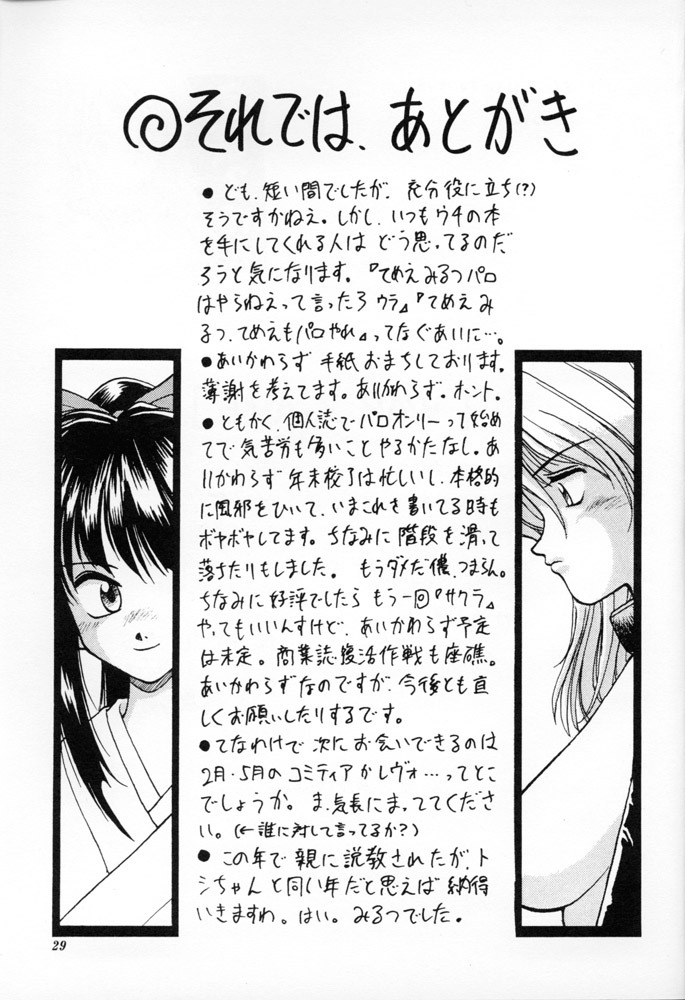 それでは、あとがき
● ども、短い間でしたが、充分役に立ち(?)
そうですかねえ。しかし、いつもウチの本
を手にしてくれる人は どう思ってるのだ
ろうと気になります。『てめえみるつパロ
はやらねえって言ったろ ウラ』『てめえ み
るつ、てめえもパロやれ』ってなぐあいに…。
●あいかわらず 手紙 おまちしております。
薄謝を考えてます。あいかわらず。ホント。
●ともかく、個人誌でパロオンリーって始め
てで気苦労も多いことやるかたなし。あ
いかわらず 年末校了は忙しいし、本格的
に風邪をひいて、いまこれを書いてる時も
ボヤボヤしてます。ちなみに 階段を滑って
落ちたりもしました。 もうダメだ儂、つまらん。
ちなみに好評でしたら もう一回『サクラ』
やってもいいんすけど、あいかわらず予定
は未定。商業誌復活作戦も座礁。
あいかわらずなのですが、今後とも宜
しくお願いしたりするです。
●てなわけで 次に お会いできるのは
2月・5月の コミティア か レヴォ…ってとこ
でしょうか。ま、気長にまっててくださ
い。(←誰に対して言ってるか?)
● この年で 親に説教されたが、ト
シちゃんと同い年だと思えば 納得
いきますわ。はい。みるつでした。
29